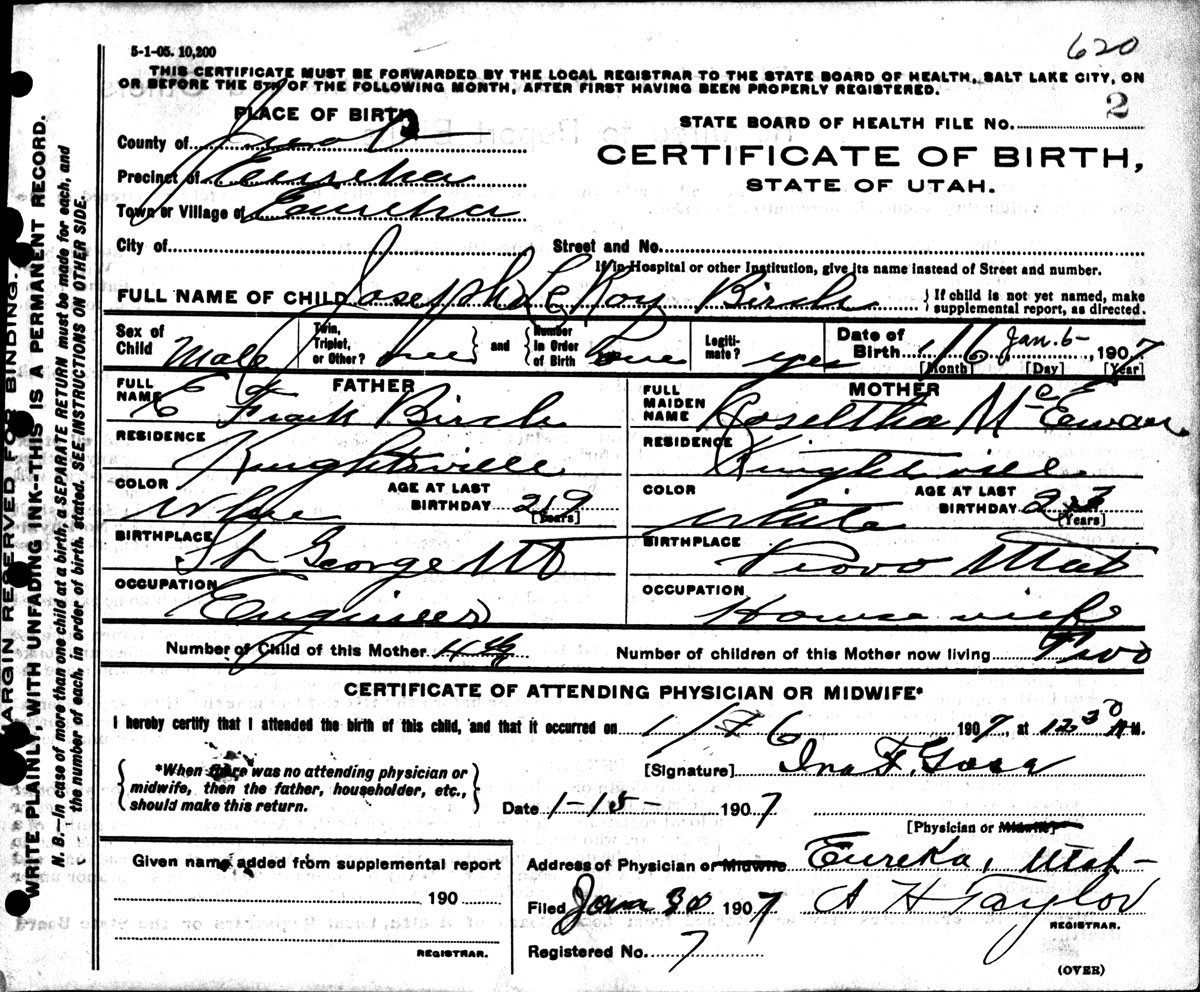 5-1-05. 10,200
620
THIS CERTIFICATE MUST BE FORWARDED BY THE LOCAL REGISTRAR TO THE STATE BOARD OF HEALTH, SALT LAKE CITY, ON
OR BEFORE THE 5TH OF THE FOLLOWING MONTH, AFTER FIRST HAVING BEEN PROPERLY REGISTERED.
PLACE OF BIRTH
STATE BOARD OF HEALTH FILE NO. 2
County of Juab
CERTIFICATE OF BIRTH,
Precinct of Eureka
STATE OF UTAH.
Town or Village of Eureka
City of Street and No.
If in Hospital or other Institution, give its name instead of Street and number.
FULL NAME OF CHILD Joseph LeRoy Birch
{ If child is not yet named, make
supplemental report, as directed.
Sex of
Child Male
Twin,
Triplet,
or Other?
} and {
Number
in Order
of Birth
Legiti-
mate? yes
Date of
Birth 1/6 Jan. 6- 1907
[Month] [Day] [Year]
FATHER
FULL
NAME E Frank Birch
MOTHER
FULL
MAIDEN
NAME Roseltha McEwan
RESIDENCE Knightsville
RESIDENCE Knightsville
COLOR White
AGE AT LAST
BIRTHDAY 29
[Years]
COLOR White
AGE AT LAST
BIRTHDAY
[Years]
BIRTHPLACE St George Ut
BIRTHPLACE Provo Utah
OCCUPATION Engineer
OCCUPATION House wife
Number of Child of this Mother 4th
Number of children of this Mother now living Two
CERTIFICATE OF ATTENDING PHYSICIAN OR MIDWIFE*
I hereby certify that I attended the birth of this child, and that it occurred on 1/6 1907, at 12 30 A M.
{ *When there was no attending physician or
midwife, then the father, householder, etc.,
should make this return. }
[Signature] Ina F.
Date 1-15- 1907
[Physician or Midwife]
Given name added from supplemental report
190
REGISTRAR.
Address of Physician or Midwife Eureka, Utah-
Filed Jan 30 1907 A H Taylor
REGISTRAR.
Registered No. 7
(OVER)
MARGIN RESERVED FOR BINDING.
WRITE PLAINLY, WITH UNFADING INK--THIS IS A PERMANENT RECORD.
N. B.—In case of more than one child at a birth, a SEPARATE RETURN must be made for each, and
the number of each, in order of birth, stated. SEE INSTRUCTIONS ON OTHER SIDE.